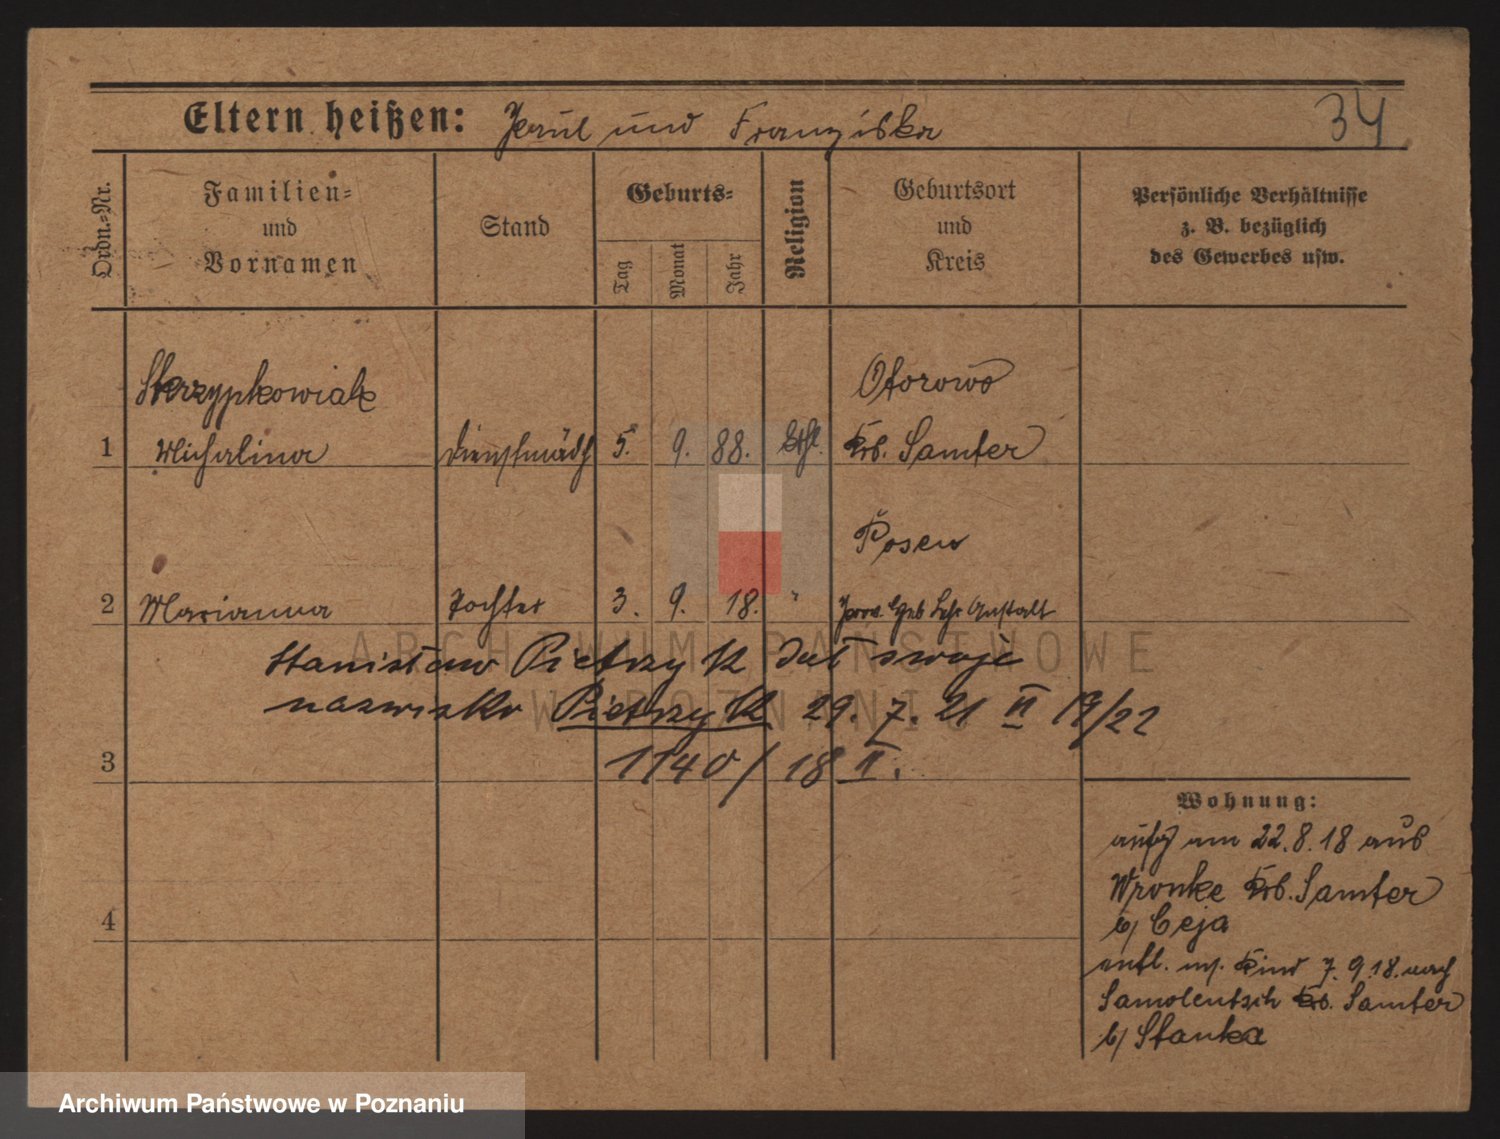 Eltern heißen: Paul und Franziska
34
Ordn.-Nr.
Familien-
und
Vornamen
Stand
Geburts-
Tag
Monat
Jahr
Religion
Geburtsort
und
Kreis
Persönliche Verhältnisse
z. B. bezüglich
des Gewerbes usw.
Skrzypkowiak
Otorowo
1 Michalina Dienstmädch 5. 9. 88. kth. Krs. Samter
Posen
2 Marianna Tochter 3. 9. 18. " Prov. Heb Lehr Anstalt
Stanisław Pietrzyk dał swoje
nazwisko Pietrzyk 29. 7. 21 II 19/22
1140/18 II.
3
Wohnung:
aufg am 22.8.18 aus
Wronke Krs. Samter
b/ Ceja
entl. m. Kind 7.9.18. nach
Samolentsch Krs. Samter
b/ Stanka
4
ARCHIWUM PAŃSTWOWE
W POZNANIU
Archiwum Państwowe w Poznaniu